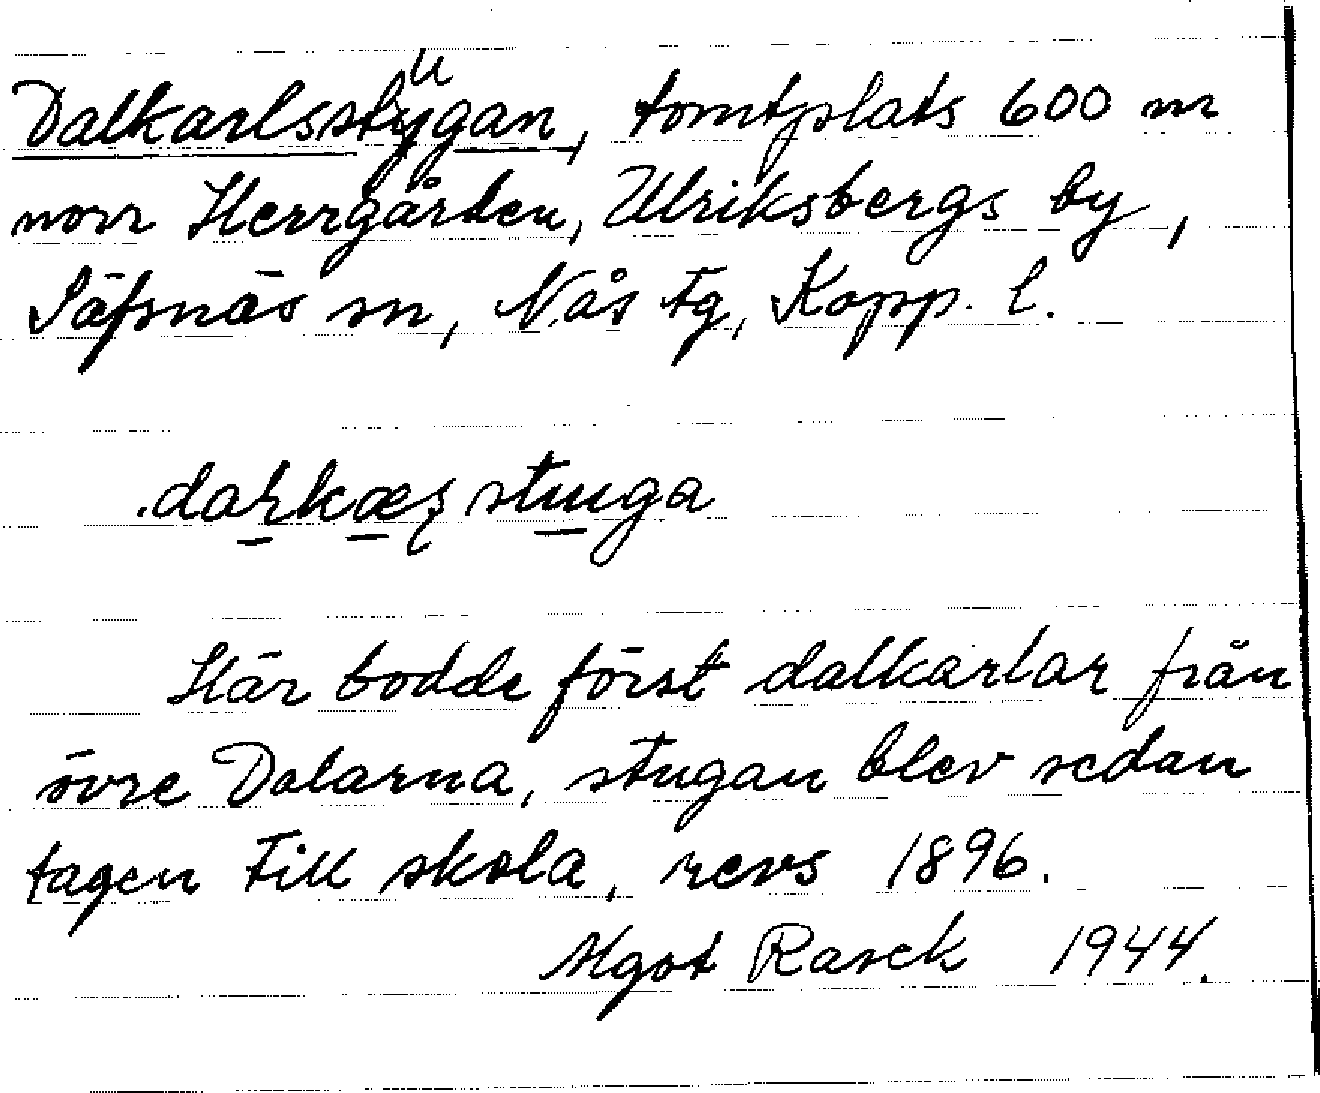 Dalkarlsstugan, tomtplats 600 m
norr Herrgården, Ulriksbergs by,
Säfsnäs sn, Nås tg, Kopp. l.
stuga
Här bodde först dalkarlar från
övre Dalarna, stugan blev sedan
tagen till skola, revs 1896.
Mgot Rasck 1944.